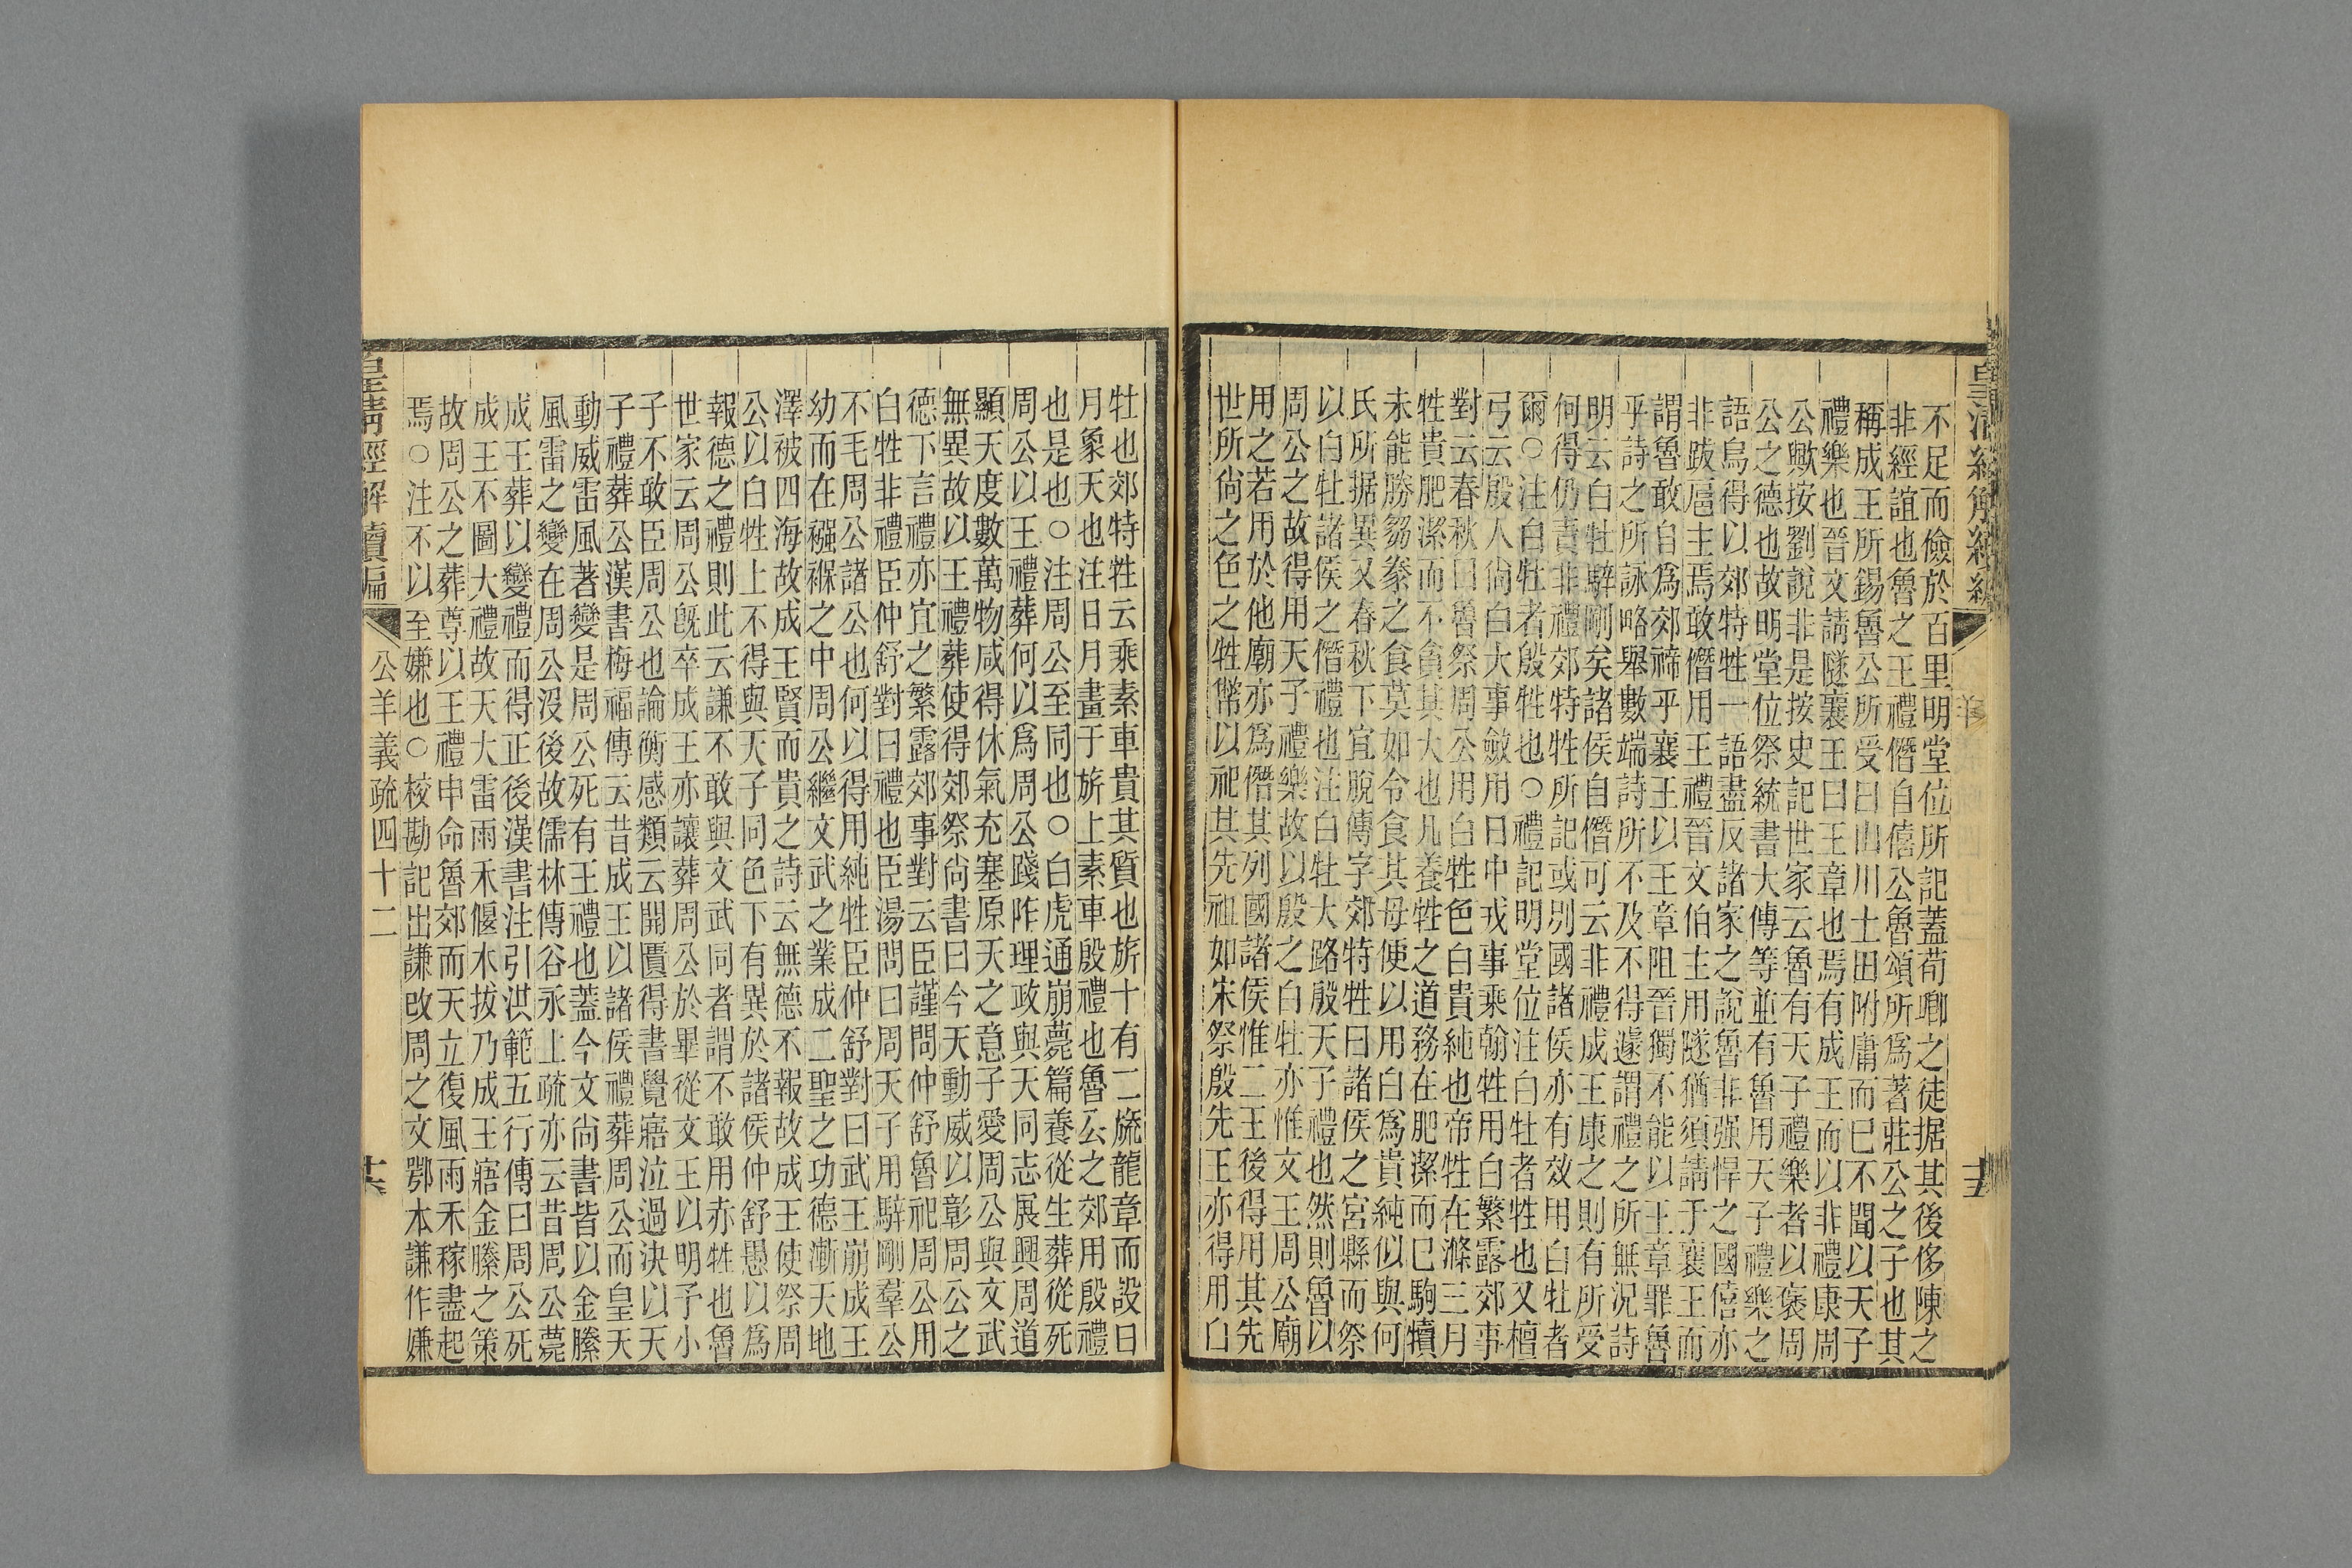 不足而儉於百里明堂位所記蓋荀卿之徒据其後侈陳之
非經誼也魯之王禮僭自僖公魯頌所爲著莊公之子也其
稱成王所錫魯公所受曰山川土田附庸而巳不聞以天子
禮樂也晉文請隧襄王曰王章也焉有成王而以非禮康周
公歟按劉說非是按史記世家云魯有天子禮樂者以褒周
公之德也故明堂位祭統書大傳等並有魯用天子禮樂之
語烏得以郊特牲一語盡反諸家之說魯非强悍之國僖亦
非跋扈主焉敢僭用王禮晉文伯主用隧猶須請于襄王而
謂魯敢自爲郊禘乎襄王以王章阻晉獨不能以王章罪魯
乎詩之所詠略舉數端詩所不及不得遽謂禮之所無況詩
明云白牡騂剛矣諸侯自僭可云非禮成王康之則有所受
何得仍責非禮郊特牲所記或別國諸侯亦有效用白牡者
爾○注白牡者殷牲也○禮記明堂位注白牡者牲也又檀
弓云殷人尙白大事斂用日中戎事乘翰牲用白繁露郊事
對云春秋曰魯祭周公用白牲色白貴純也帝牲在滌三月
牲貴肥潔而不貪其大也凡養牲之道務在肥潔而巳駒犢
未能勝芻豢之食莫如令食其母便以用白爲貴純似與何
氏所据異又春秋下宜脫傳字郊特牲曰諸侯之宮縣而祭
以白牡諸侯之僭禮也注白牡大路殷天子禮也然則魯以
周公之故得用天子禮樂故以殷之白牡亦惟文王周公廟
用之若用於他廟亦爲僭其列國諸侯惟二王後得用其先
世所尙之色之牲常以祀其先祖如宋祭殷先王亦得用白
牡也郊特牲云乘素車貴其質也旂十有二旒龍章而設日
月象天也注日月畫于旂上素車殷禮也魯公之郊用殷禮
也是也○注周公至同也○白虎通崩薨篇養從生葬從死
周公以王禮葬何以爲周公踐阼理政與天同志展興周道
顯天度數萬物咸得休氣充塞原天之意子愛周公與文武
無異故以王禮葬使得郊祭尙書曰今天動威以彰周公之
德下言禮亦宜之繁露郊事對云臣謹問仲舒魯祀周公用
白牲非禮臣仲舒對曰禮也臣湯問曰周天子用騂剛羣公
不毛周公諸公也何以得用純牲臣仲舒對曰武王崩成王
幼而在襁褓之中周公繼文武之業成二聖之功德漸天地
澤被四海故成王賢而貴之詩云無德不報故成王使祭周
公以白牲上不得與天子同色下有異於諸侯仲舒愚以爲
報德之禮則此云謙不敢與文武同者謂不敢用赤牲也魯
世家云周公旣卒成王亦讓葬周公於畢從文王以明予小
子不敢臣周公也論衡感類云開匱得書覺寤泣過決以天
子禮葬公漢書梅福傳云昔成王以諸侯禮葬周公而皇天
動威雷風著變是周公死有王禮也蓋今文尙書皆以金縢
風雷之變在周公沒後故儒林傳谷永上疏亦云昔周公薨
成王葬以變禮而得正後漢書注引洪範五行傳曰周公死
成王不圖大禮故天大雷雨禾偃木拔乃成王寤金縢之策
故周公之葬尊以王禮申命魯郊而天立復風雨禾稼盡起
焉○注不以至嫌也○校勘記出謙改周之文鄂本謙作嫌
皇清經解續編 公羊義疏四十二 十六